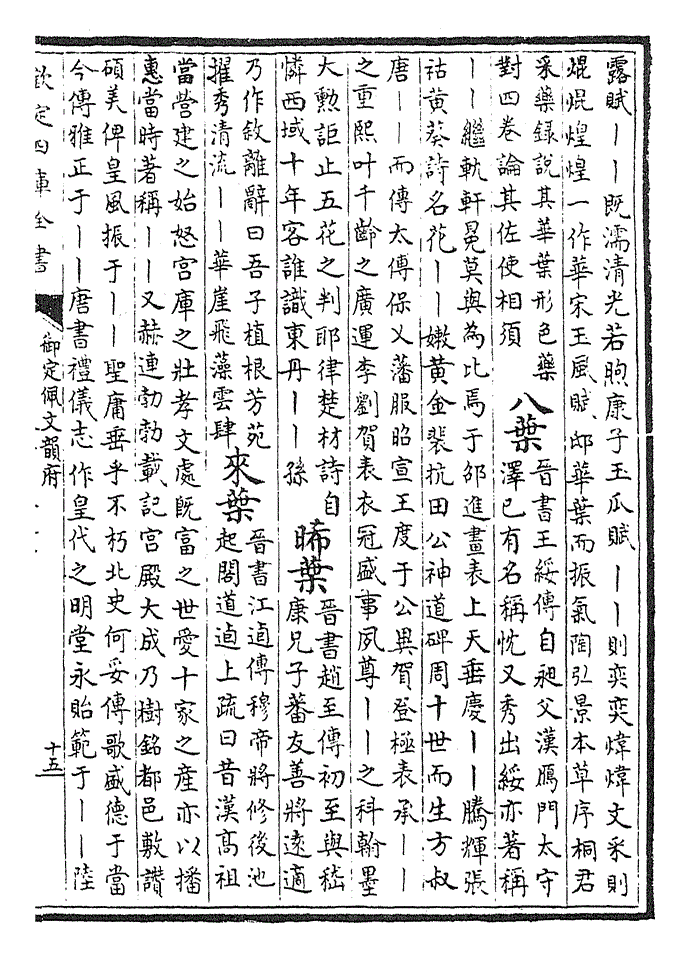 露賦丨丨既濡清光若煦康子玉瓜賦丨丨則奕奕煒煒文采則
焜焜煌煌一作華宋玉風賦邸華葉而振氣陶弘景本草序桐君
采藥録說其華葉形色藥
對四卷論其佐使相須
八葉
晉書王綏傳自昶父漢鴈門太守
澤已有名稱忱又秀出綏亦著稱
丨丨繼軌軒冕莫與為比焉于邵進畫表上天垂慶丨丨騰輝張
祜黄葵詩名花丨丨嫩黄金裴抗田公神道碑周十世而生方叔
唐丨丨而傳太傅保乂藩服昭宣王度于公異賀登極表承丨丨
之重熙叶千齡之廣運李劉賀表衣冠盛事夙尊丨丨之科翰墨
大勲詎止五花之判耶律楚材詩自
憐西域十年客誰識東丹丨丨孫
晞葉
晉書趙至傳初至與嵇
康兄子蕃友善將逺適
乃作敘離辭曰吾子植根芳苑
擢秀清流丨丨華崖飛藻雲肆
來葉
晉書江逌傳穆帝將修後池
起閣道逌上疏曰昔漢髙祖
當營建之始怒宫庫之壯孝文處既富之世愛十家之產亦以播
惠當時著稱丨丨又赫連勃勃載記宫殿大成乃樹銘都邑敷讃
碩美俾皇風振于丨丨聖庸垂乎不朽北史何妥傳歌盛德于當
今傳雅正于丨丨唐書禮儀志作皇代之明堂永貽範于丨丨陸
欽定四庫全書
御定佩文韻府
十五